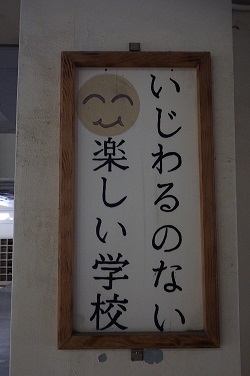 いじわるのない
楽しい学校